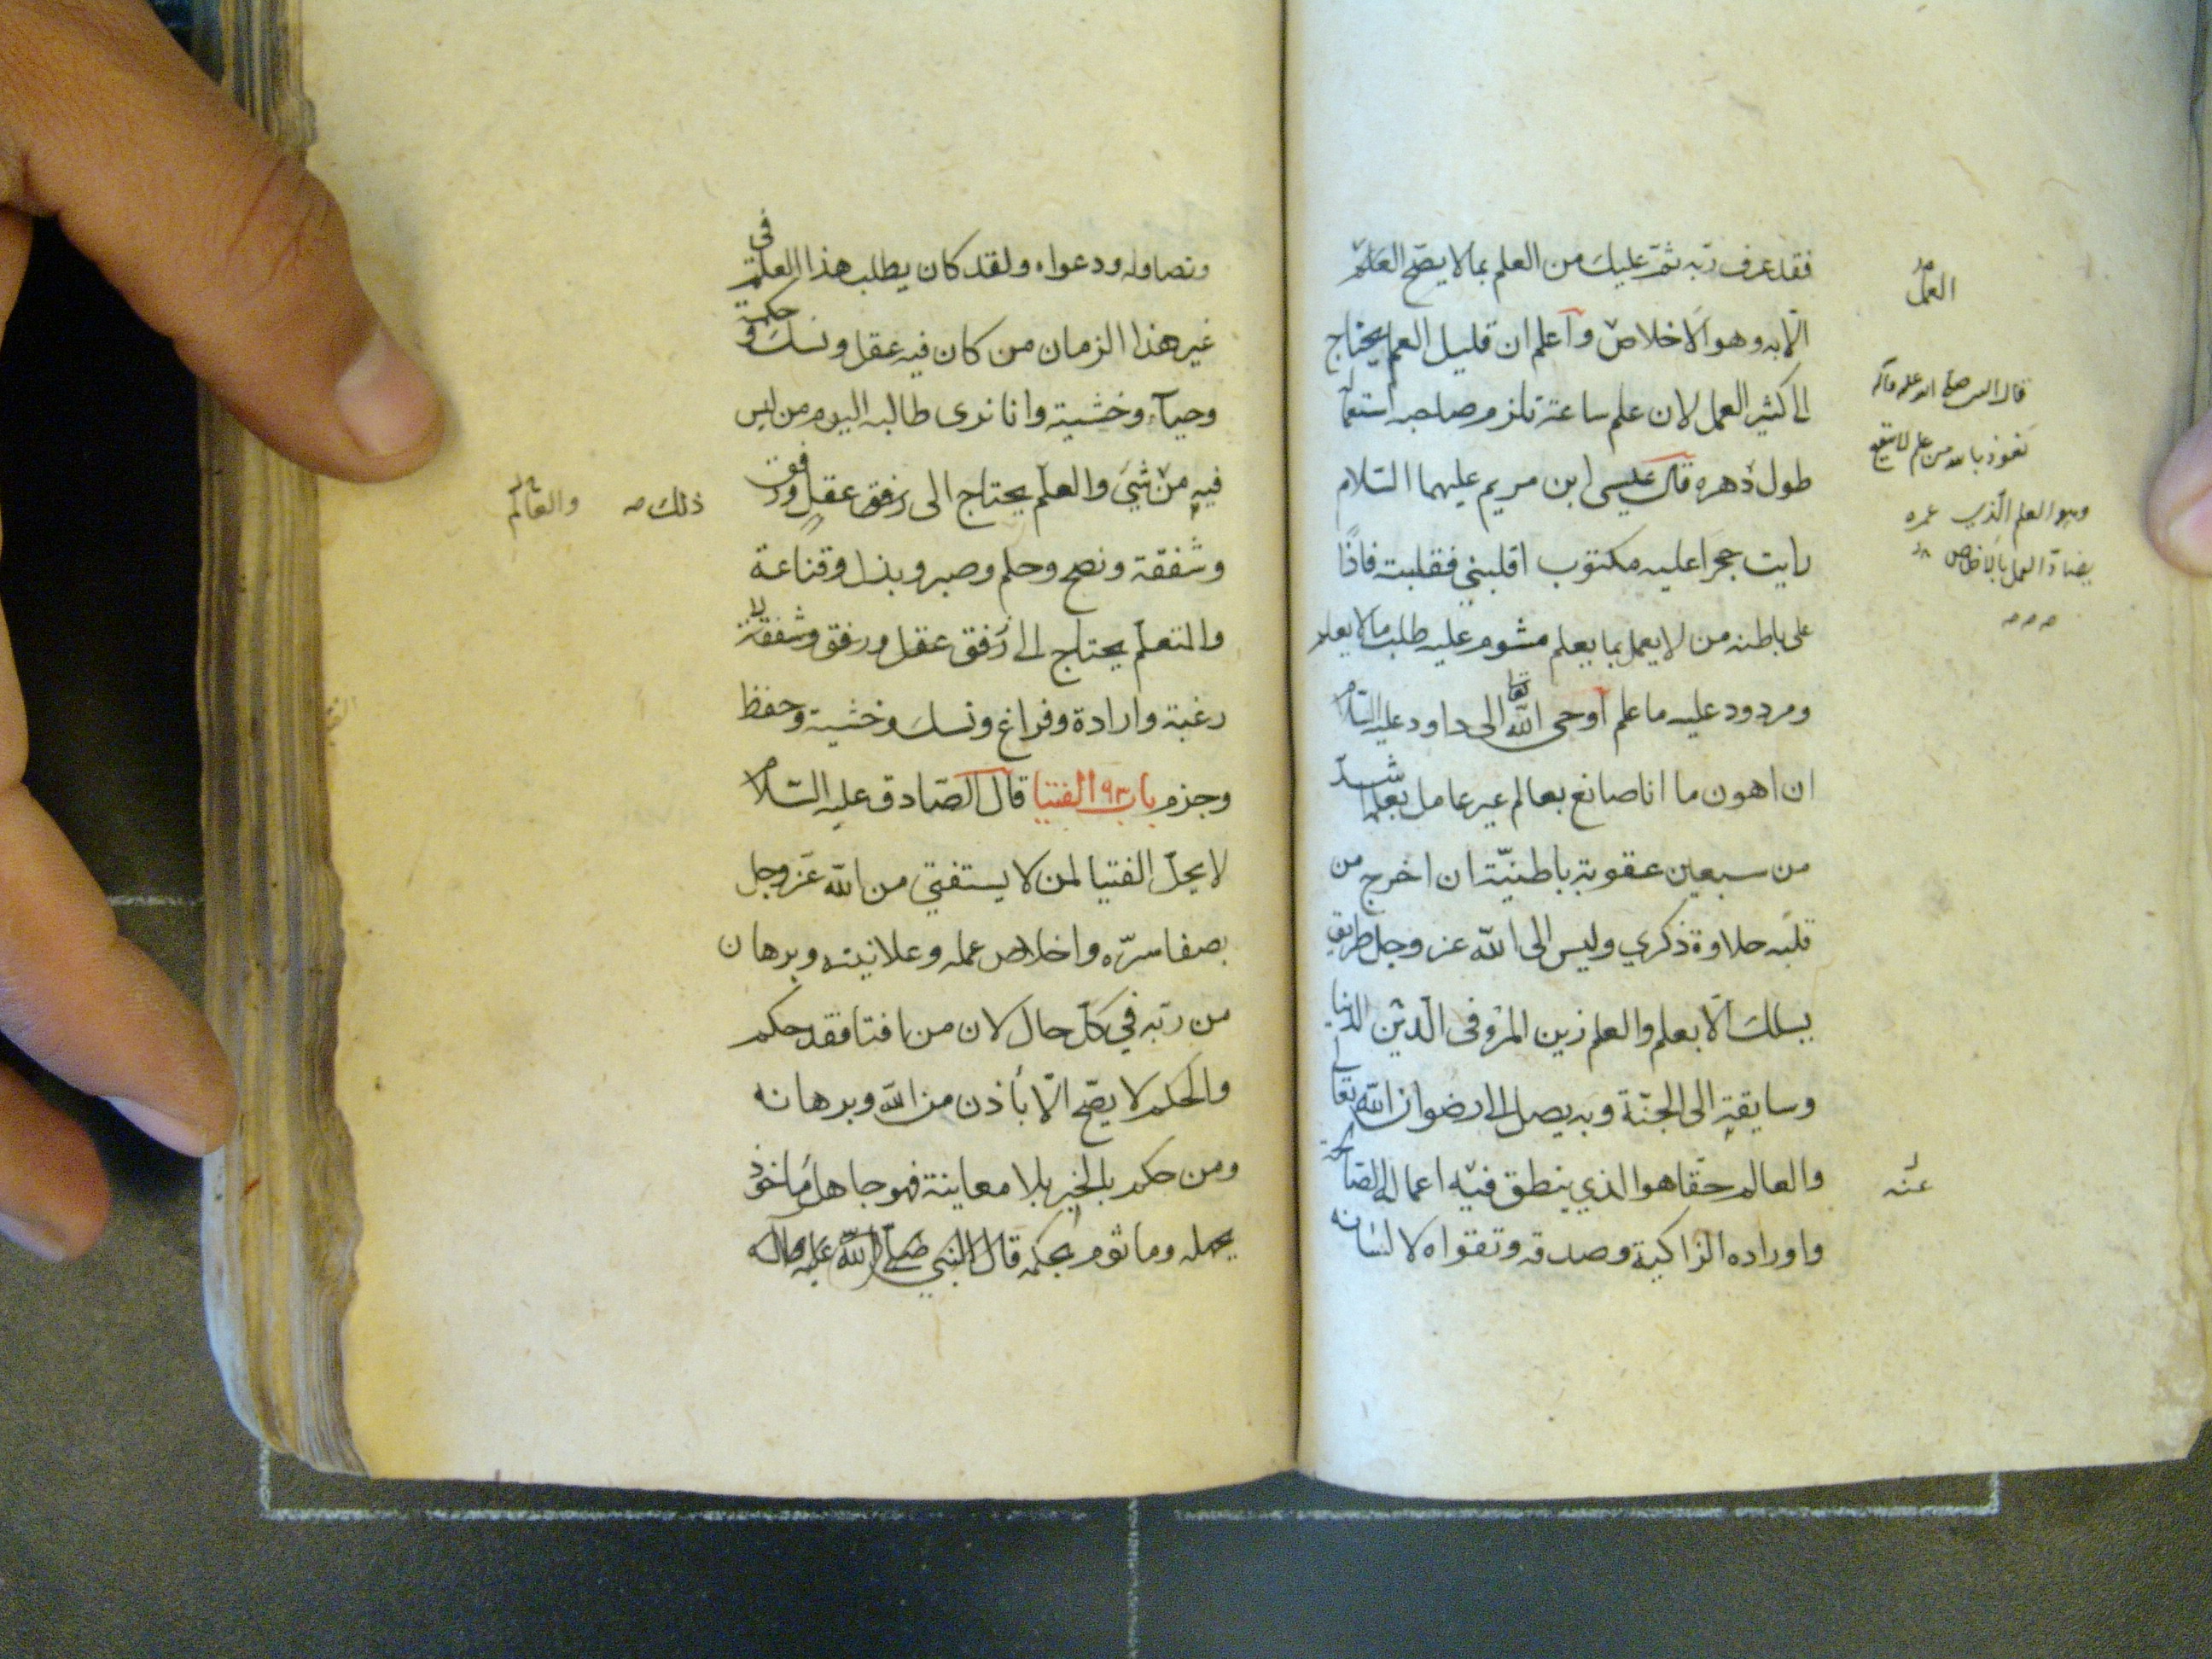 فقد عرف ربّه ثمّ عليك من العلم بما لا يصحّ العلم
الّا به وهو الاخلاص واعلم ان قليل العلم يحتاج
الى كثير العمل لان علم ساعة تلزم صاحبه استعماله
طول دهره قال عيسى ابن مريم عليهما السّلام
رايت حجرا عليه مكتوب اقلبني فقلبت فاذًا
على باطنه من لا يعمل بما يعلم مشوم عليه طلب ما لا يعلم
ومردود عليه ما علم اوحى اللّه تعا الى داود عليه السّلام
ان اهون ما انا صانع بعالم غير عامل بعلمه اشدّ
من سبعين عقوبة باطنيّة ان اخرج من
قلبه حلاوة ذكري وليس الى اللّه عز وجل طريق
يسلك الّا بعلم والعلم زين المرؤ فى الدّين الدنيا
وسايقه الى الجنّة وبه يصل الى رضوان اللّه تعالى
والعالم حقّا هو الذي ينطق فيه اعماله الصّالحة
واوراده الزاكية وصدقه وتقواه لا لسانه
العمل
قال النبي صلى الله عليه وآله
نعوذ بالله من علم لا ينفع
وهو العلم الّذي
يضادّ العمل بالاخلاص
عنه
وتصاوله ودعواه ولقد كان يطلب هذا العلم في
غير هذا الزمان من كان فيه عقل ونسك وحكمة
وحيآء وخشية وانا نرى طالبه اليوم من ليس
فيه من شيَ والعلم يحتاج الى رفق عقل ورفق
ذلك
والعالم
وشفقة ونصح وحلم وصبر وبذل وقناعة
والمتعلّم يحتاج الى رفق عقل ورفق وشفقة
رغبة وارادة وفراغ ونسك وخشية وحفظ
وجزم باب ٩٣ الفتيا قال الصّادق عليه السّلام
لا يحلّ الفتيا لمن لا يستفتي من اللّه عزّ وجل
بصفا سرّه واخلاص عمله وعلانيته وبرهان
من ربّه في كلّ حال لان من افتا فقد حكم
والحكم لا يصّح الّا بأذن من اللّه وبرهانه
ومن حكم بالخبر بلا معاينة فهو جاهل مأخوذ
بجهله وماثوم بحكمه قال النبي صلّى اللّه عليه وآله